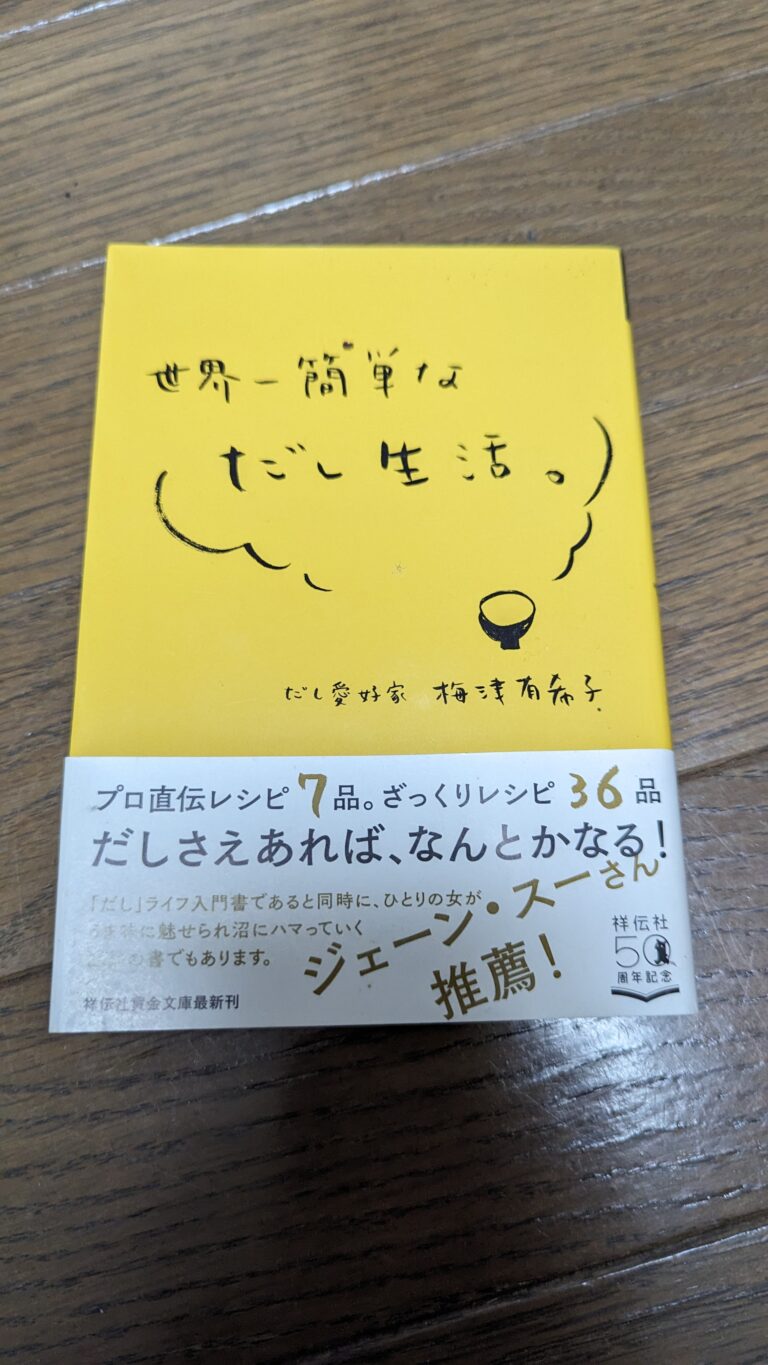 世界一簡単な
だし生活。
だし愛好家 梅津有希子
プロ直伝レシピ7品。ざっくりレシピ36品
だしさえあれば、なんとかなる!
「だし」ライフ入門書であると同時に、ひとりの女が
に魅せられ沼にハマっていく
の書でもあります。
ジェーン・スーさん
推薦!
祥伝社黄金文庫最新刊
祥伝社
50
周年記念